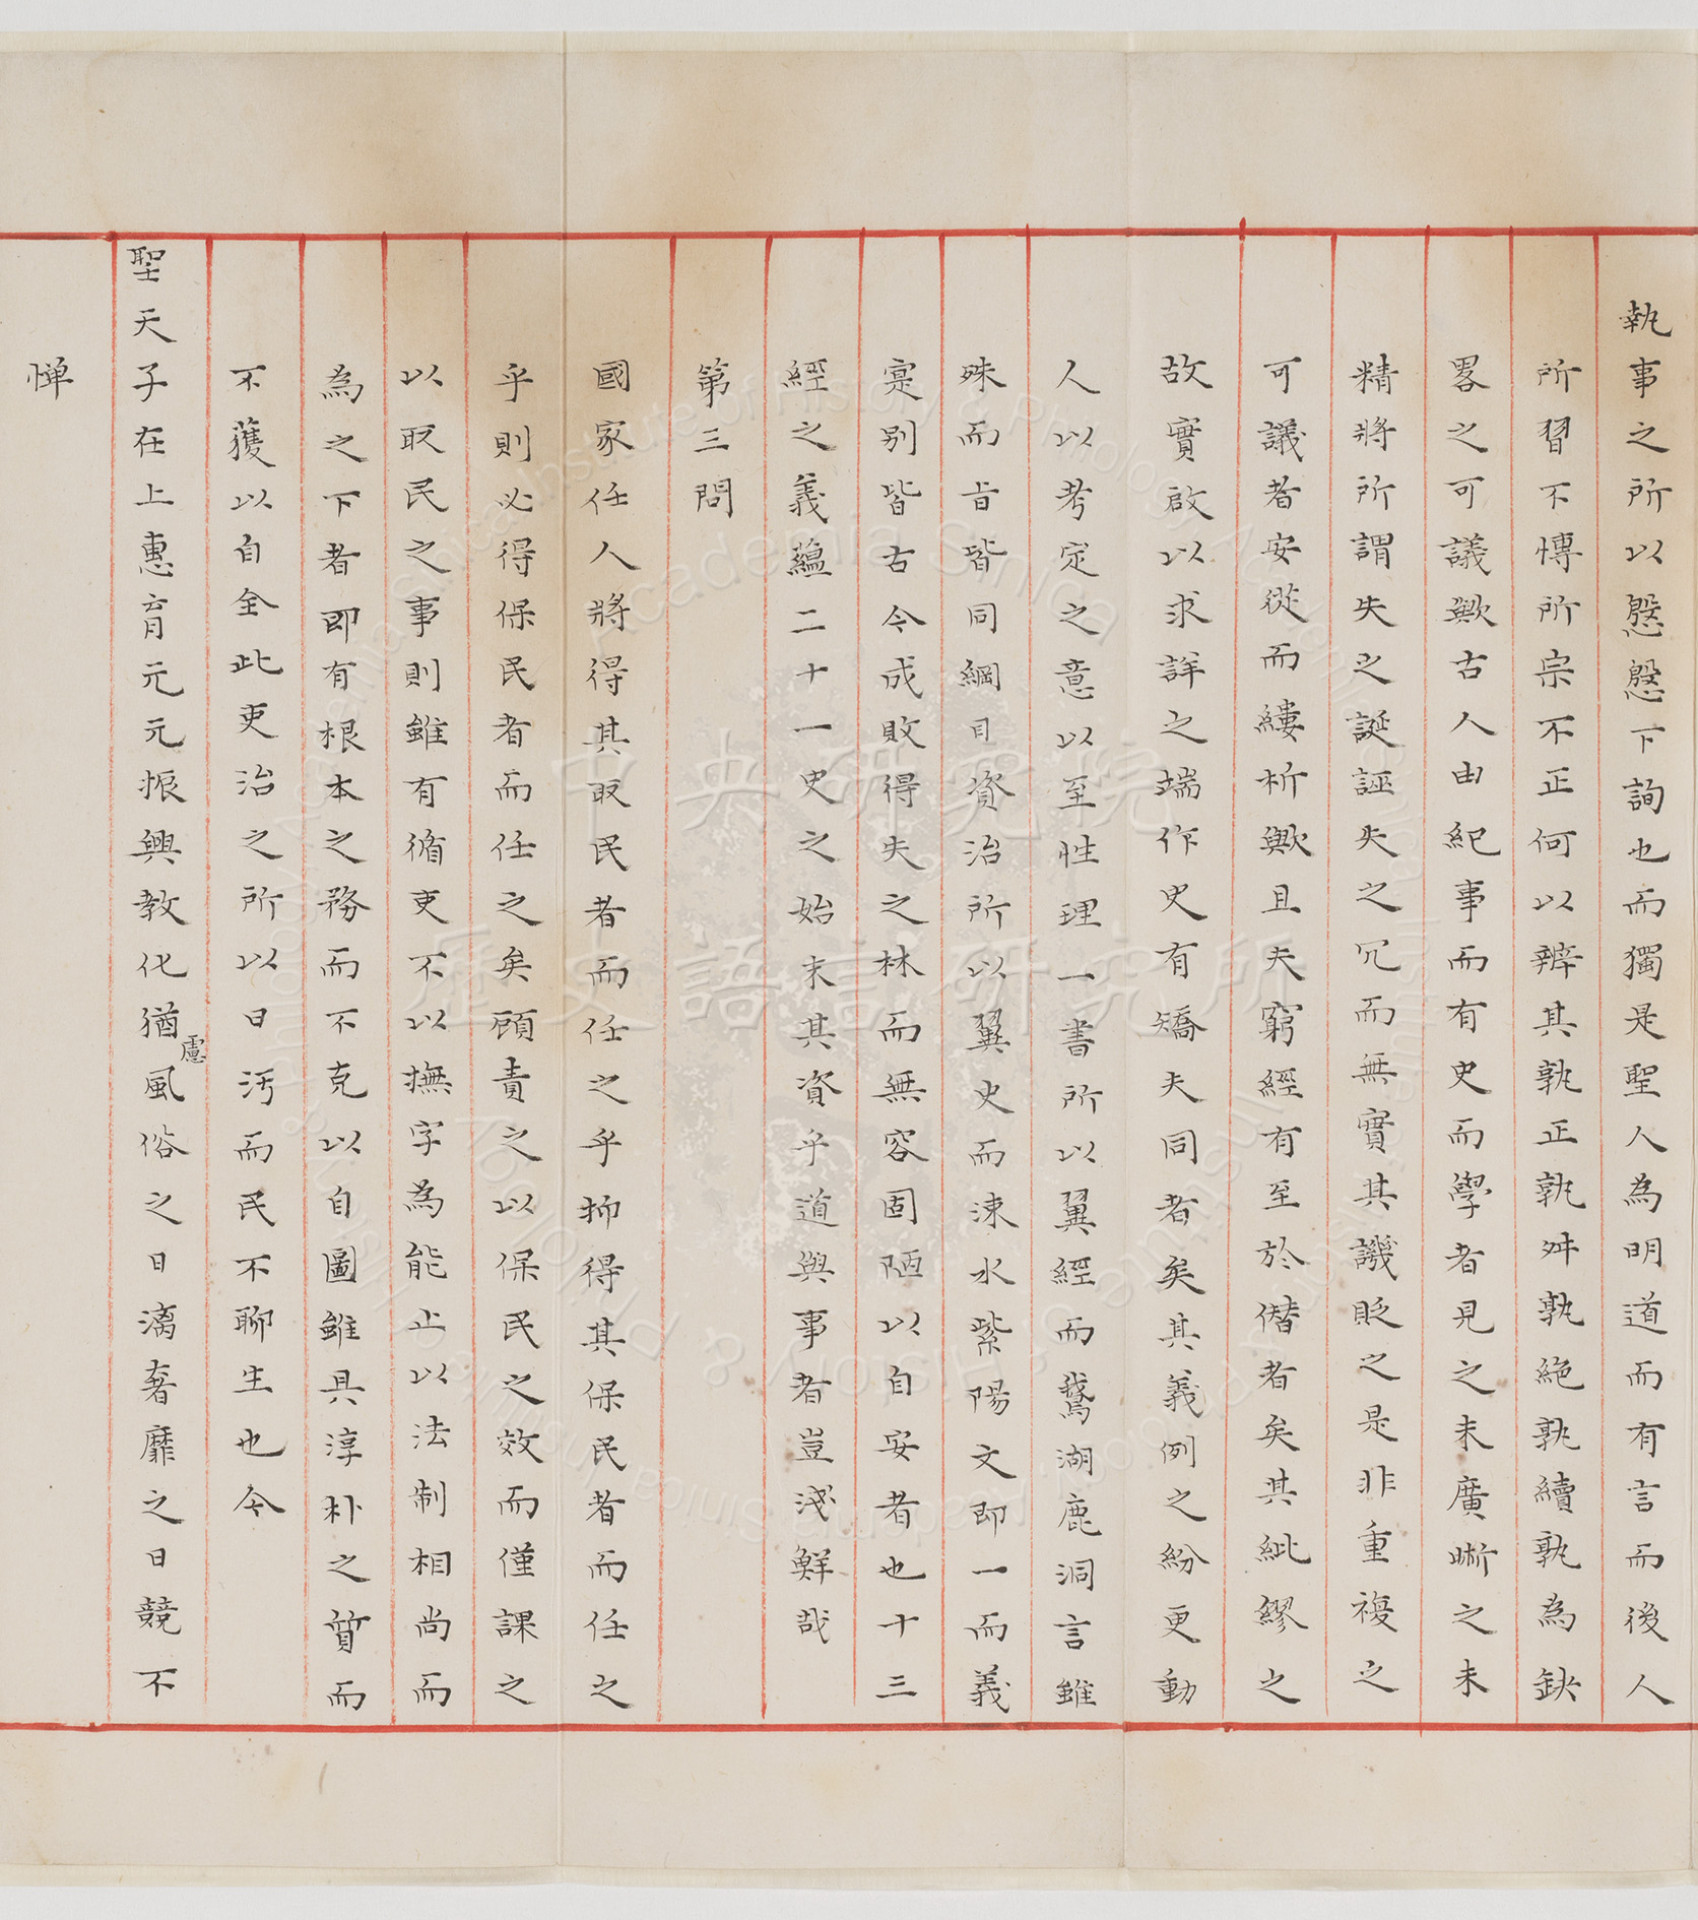 執事之所以慇慇下詢也而獨是聖人為明道而有言而後人
所習不博所宗不正何以辨其孰正孰舛孰絕孰續孰為缺
畧之可議歟古人由紀事而有史而學者見之未廣晰之未
精將所謂失之誕誣失之冗而無實其譏貶之是非重複之
可議者安從而縷析歟且夫窮經有至於僭者矣其紕繆之
故實啟以求詳之端作史有矯夫同者矣其義例之紛更動
人以考定之意以至性理一書所以翼經而鵞湖鹿洞言雖
殊而㫖皆同綱目資治所以翼史而涑水紫陽文即一而義
寔別皆古今成敗得失之林而無容固陋以自安者也十三
經之義蘊二十一史之始末其資乎道與事者豈淺鮮哉
第三問
國家任人將得其取民者而任之乎抑得其保民者而任之
乎則必得保民者而任之矣顧責之以保民之效而僅課之
以取民之事則雖有循吏不以撫字為能止以法制相尚而
為之下者即有根本之務而不克以自圖雖具淳朴之質而
不獲以自全此吏治之所以日汚而民不聊生也今
聖天子在上惠育元元振興教化猶慮風俗之日漓奢靡之日競不
憚
中央研究院
歷史語言研究所
Institute of History & Philology, Academia Sinica
Academia Sinica